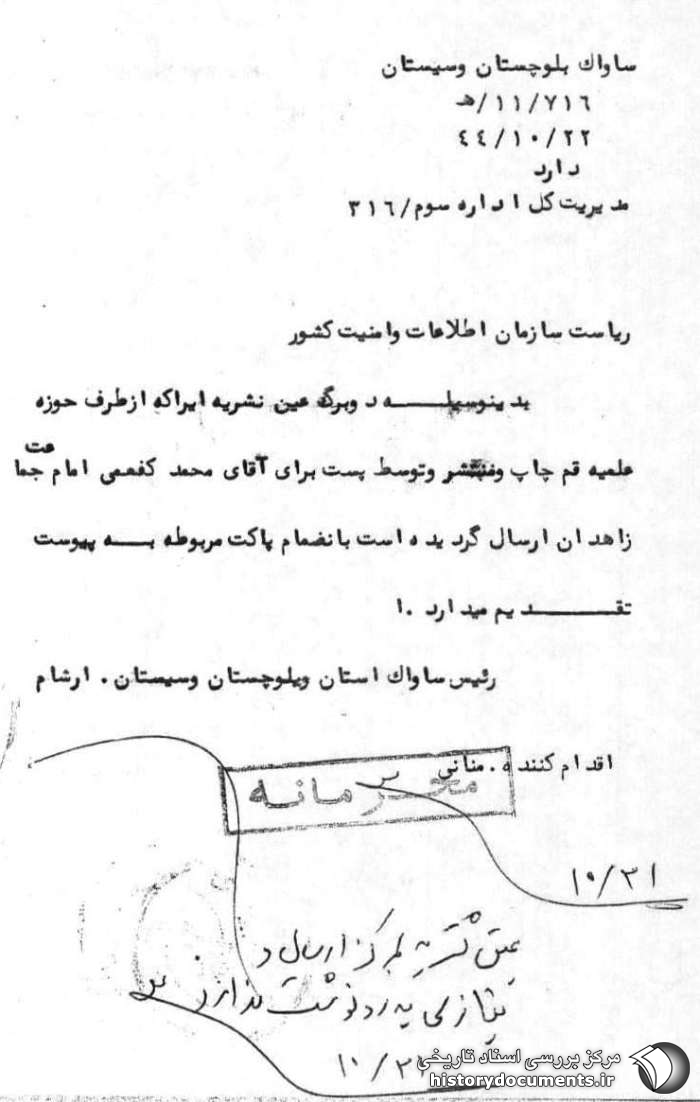 ساواك بلوچستان وسیستان
۷۱۶/۱۱/هـ
۴۴/۱۰/۲۲
دارد
مدیریت کل اداره سوم/۳۱۶
ریاست سازمان اطلاعات وامنیت کشور
بدینوسیلـــه دوبرگ عین نشریه ایراکه ازطرف حوزه
علمیه قم چاپ ومنتشر وتوسط پست برای آقای محمد کفعمی امام جماعت
زاهدان ارسال گردیده است بانضمام پاکت مربوطه بــه پیوست
تقــــدیم میدارد .ا
رئیس ساواك استان وبلوچستان وسیستان . ارشام
اقدام کننده . منانی
محرمانه
۱۰/۲۱
عین نشریه بمرکز ارسال و
نیازی به رونوشت ندارد
۱۰/۲۱
مرکز بررسی اسناد تاریخی
historydocuments.ir